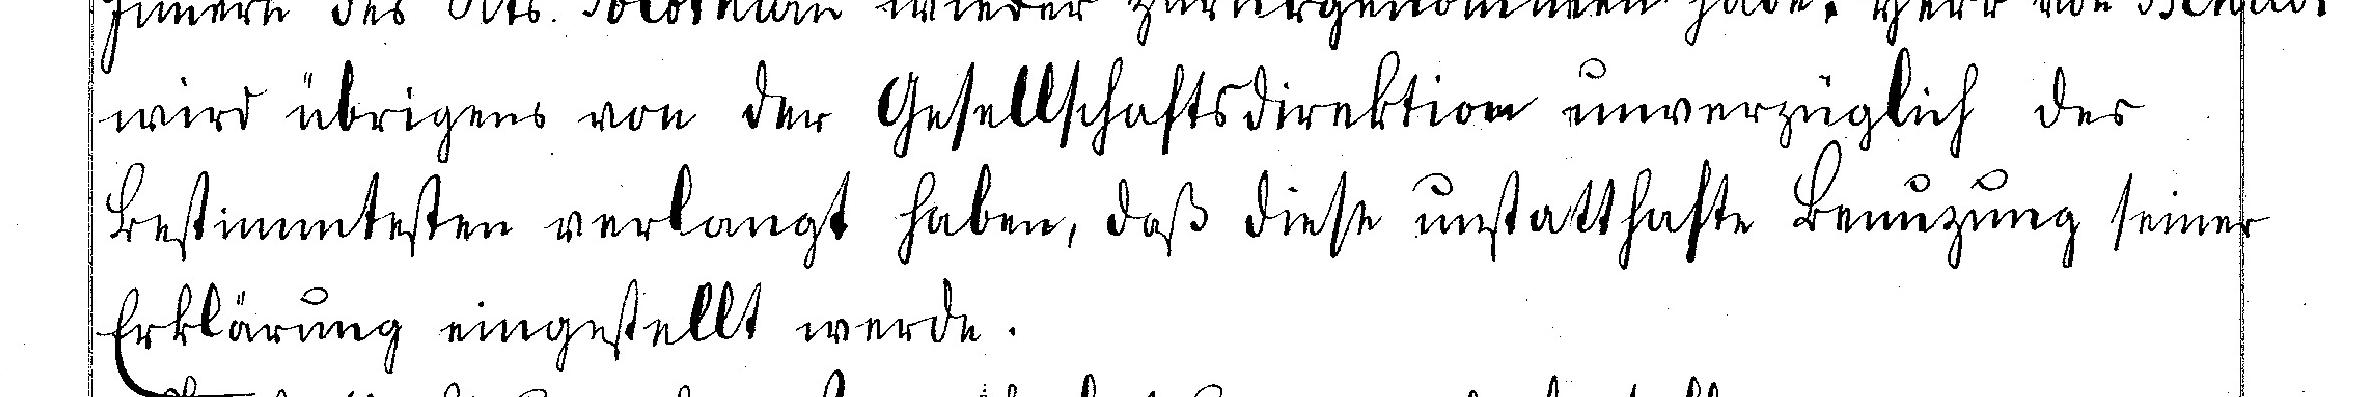 Innern des Kts. wieder zurückgenommen habe. Herr von
wird übrigens von der Gesellschaftsdirektion unverzüglich des
Bestimmtesten verlangt haben, daß diese unstatthafte Benuzung seiner
Erklärung eingestellt werde.